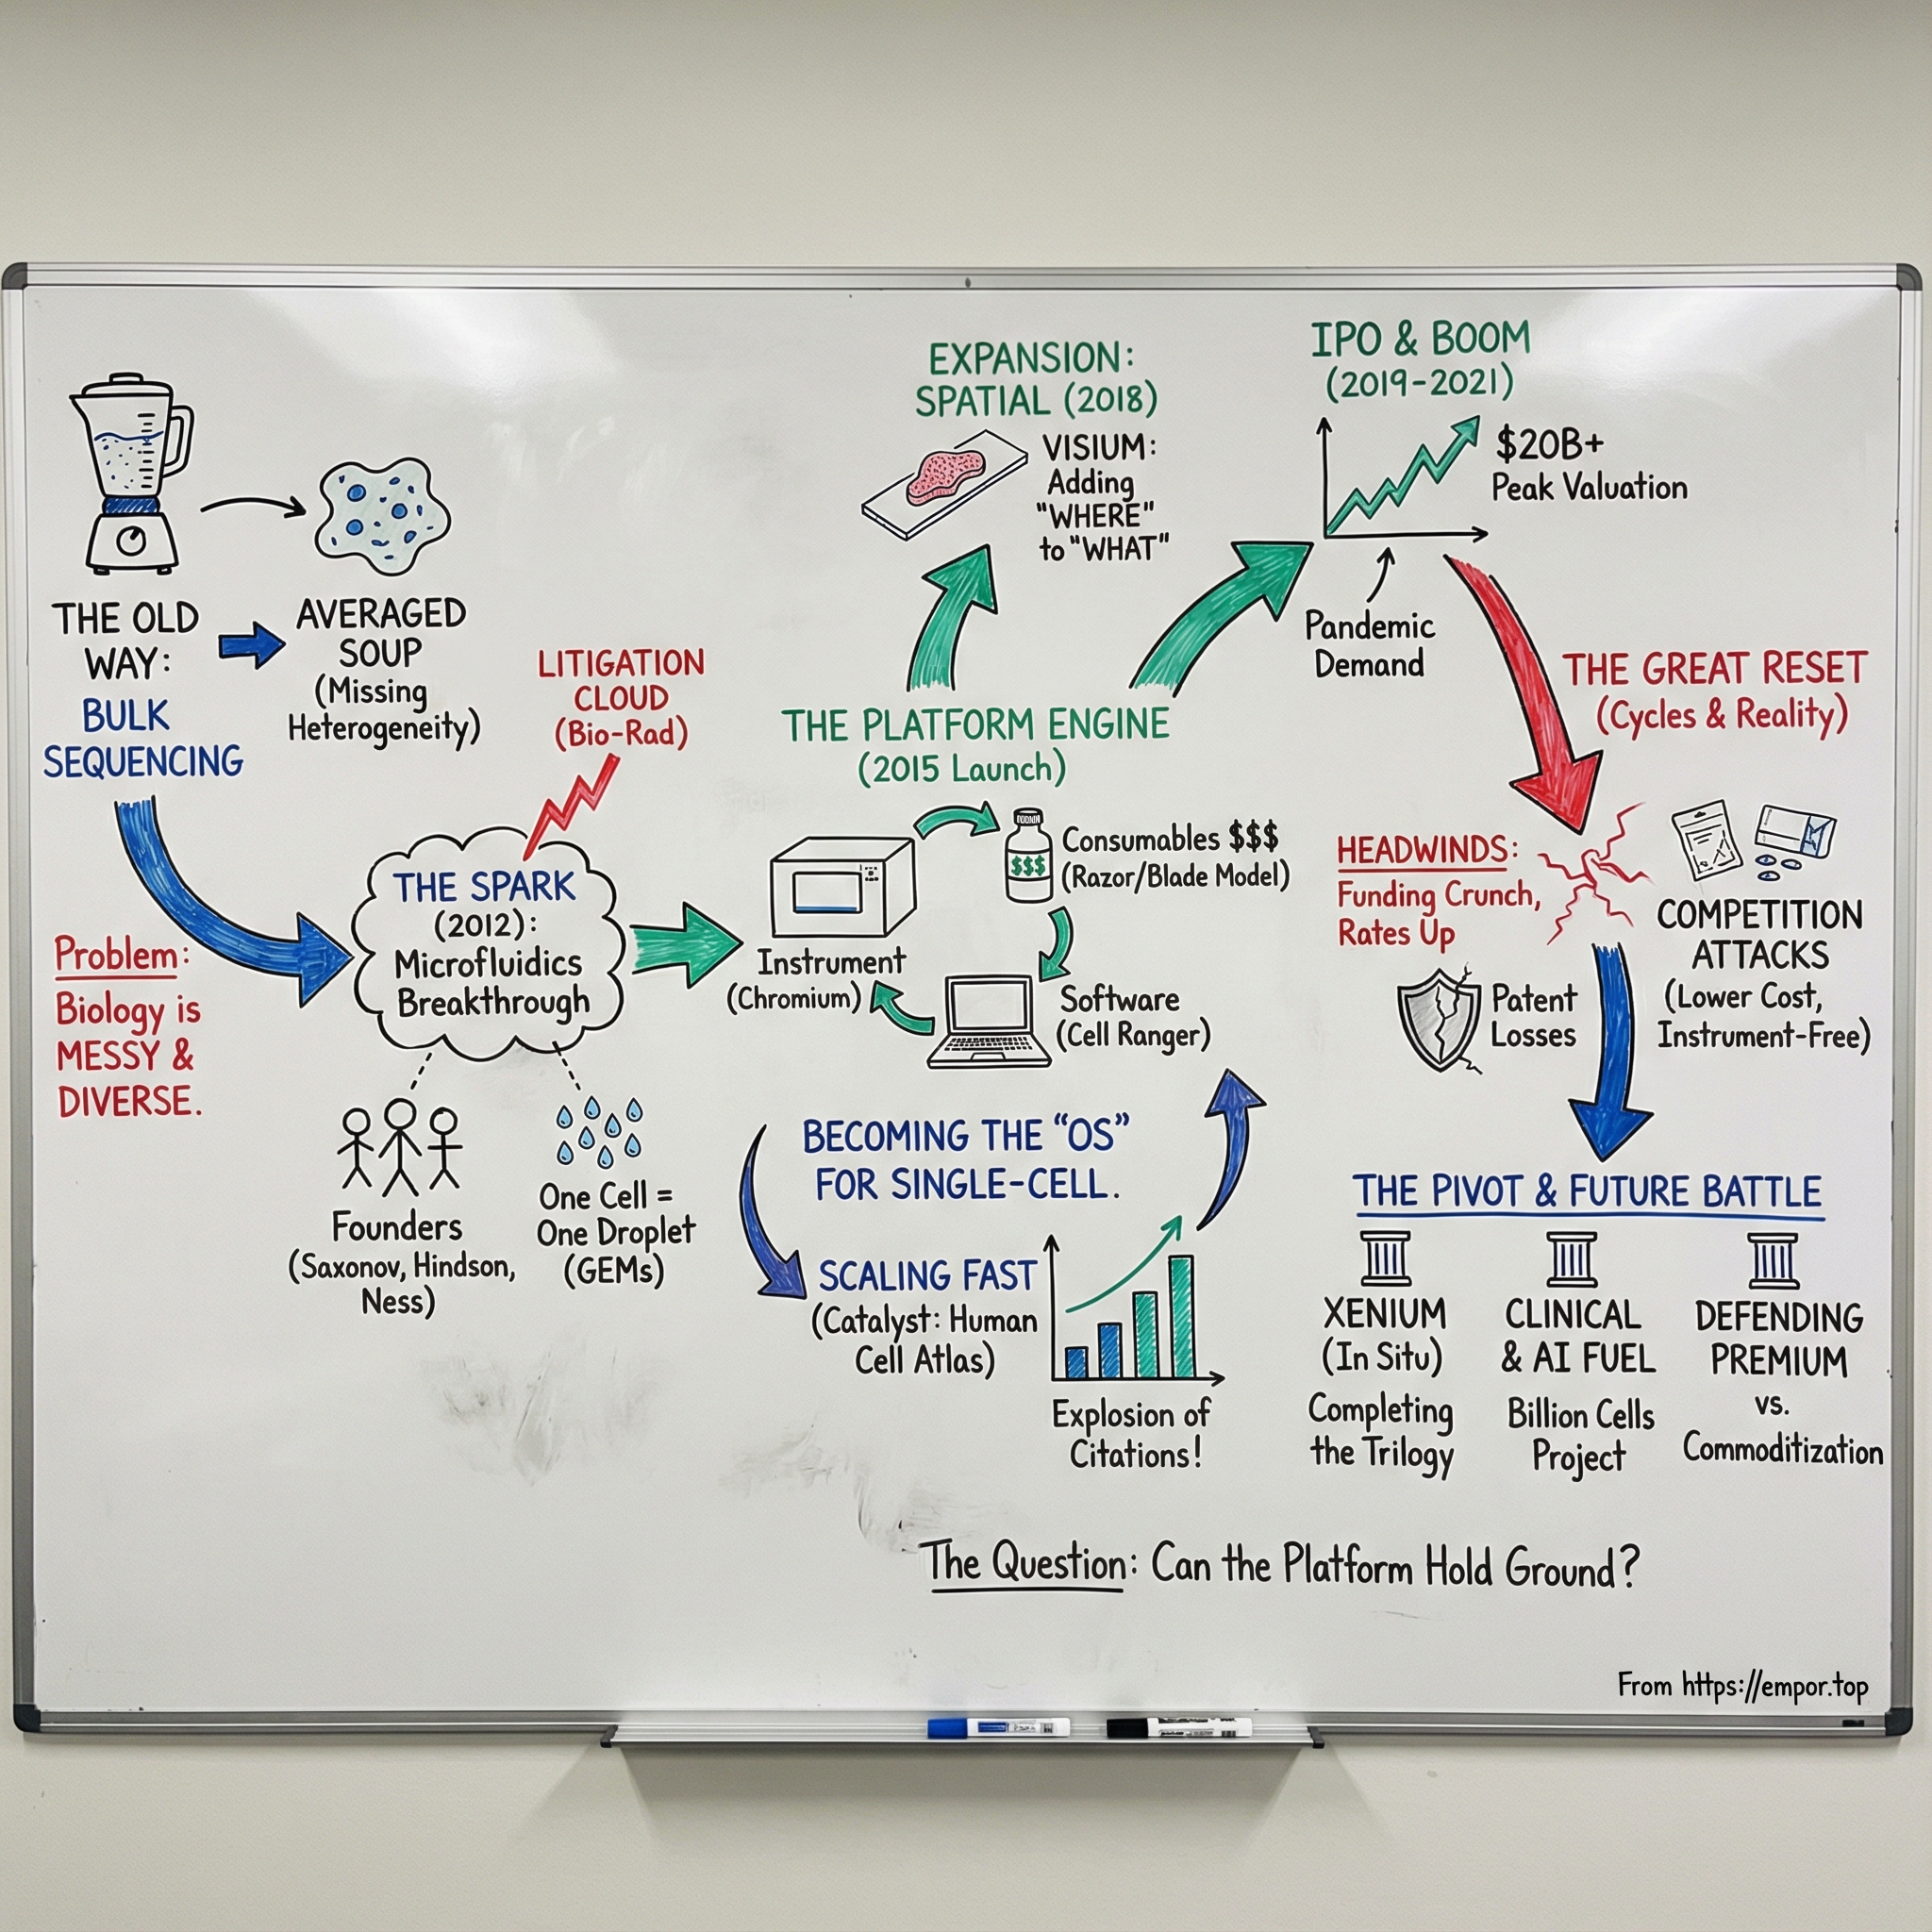 THE OLD
WAY:
BULK
SEQUENCING
AVERAGED
SOUP
(Missing
Heterogeneity)
Problem:
Biology is
MESSY &
DIVERSE.
LITIGATION
CLOUD
(Bio-Rad)
THE SPARK
(2012):
Microfluidics
Breakthrough
Founders
(Saxonov, Hindson,
Ness)
One Cell =
One Droplet
(GEMs)
EXPANSION:
SPATIAL (2018)
VISIUM:
Adding
"WHERE"
to "WHAT"
THE PLATFORM ENGINE
(2015 Launch)
Instrument
(Chromium)
$$$
Consumables $$$
(Razor/Blade Model)
Software
(Cell Ranger)
BECOMING THE "OS"
FOR SINGLE-CELL.
SCALING FAST
(Catalyst: Human
Cell Atlas)
Explosion of
Citations!
IPO & BOOM
(2019-2021)
$20B+
Peak Valuation
Pandemic
Demand
THE GREAT RESET
(Cycles & Reality)
HEADWINDS:
Funding Crunch,
Rates Up
Patent
Losses
COMPETITION
ATTACKS
(Lower Cost,
Instrument-Free)
THE PIVOT & FUTURE BATTLE
XENIUM
(In Situ)
Completing
the Trilogy
CLINICAL
& AI FUEL
Billion Cells
Project
DEFENDING
PREMIUM
vs.
Commoditization
The Question: Can the Platform Hold Ground?
From https://empor.top